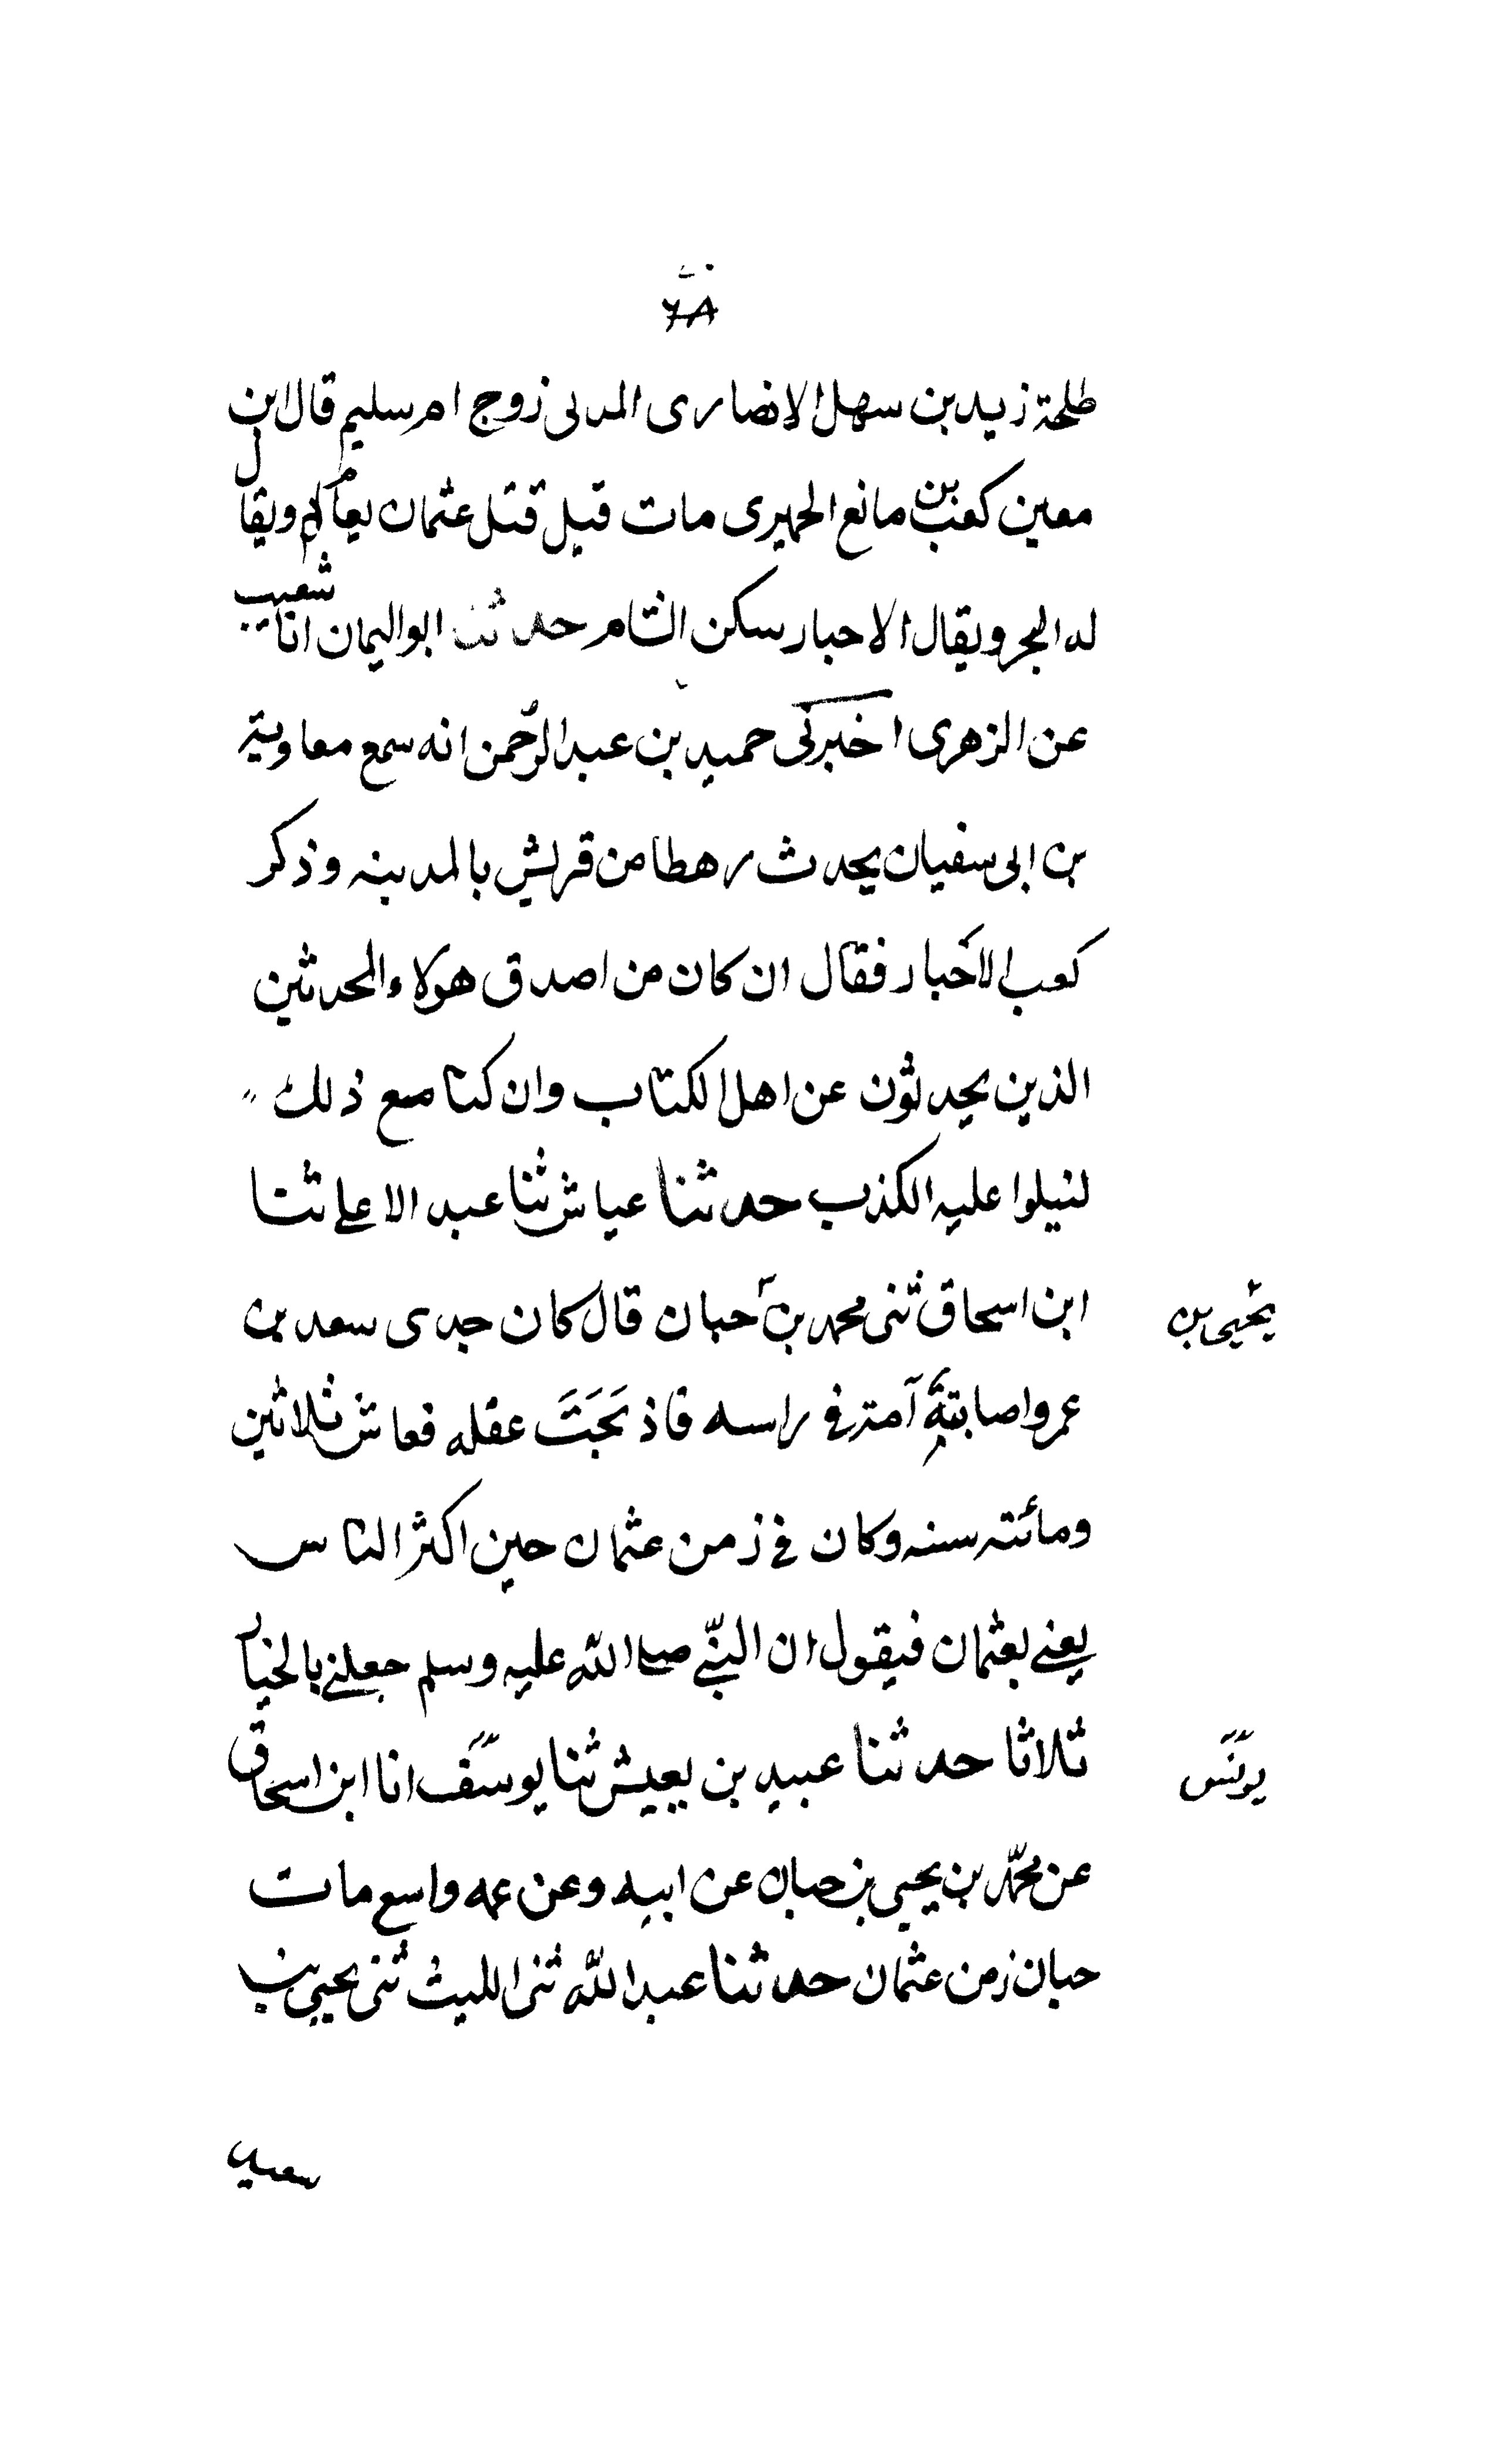 ٦٨
طلحة زيد بن سهل الانصارى المدنى زوج ام سليم قال ابن
معين كعب بن مانع الحميرى مات قبل قتل عثمان بعام ويقال
له الحبر ويقال الاحبار سكن الشام حدثنا ابو اليمان انا شعيب
عن الزهرى اخبرنى حميد بن عبد الرحمن انه سمع معاوية
بن ابى سفيان يحدث رهطا من قريش بالمدينه وذكر
كعب الاخبار فقال ان كان من اصدق هولاء المحدثين
الذين يحدثون عن اهل الكتاب وان كنا مع ذلك
لنبلوا عليه الكذب حدثنا عياش ثنا عبد الاعلى ثنا
ابن اسحاق ثنى محمد بن حبان قال كان جدى سعد بن
يحيى بن
عمرو اصابته آمة فى راسه فاذ عقله فعاش ثلاثين
ومائته سنه وكان فى زمن عثمان حين اكثر الناس
يعنى بعثمان فيقول ان النبى صلى الله عليه وسلم جعلنى بالخيار
ثلاثا حدثنا عبيد بن يعيش ثنا يوسف انا ابن اسحاق
يونس
عن محمد بن يحيى بن حبان عن ابيه وعن عمه واسع مات
حبان زمن عثمان حدثنا عبد الله ثنى الليث ثنى يحيى بن
سعيد